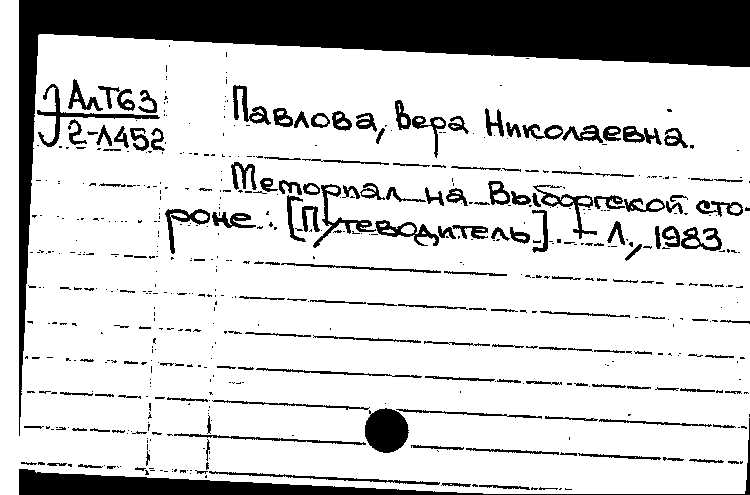 АлТ63
2-Л452
Павлова, Вера Николаевна.
Меморпал на Выборгской сто-
роне : [Путеводитель]. – Л., 1983